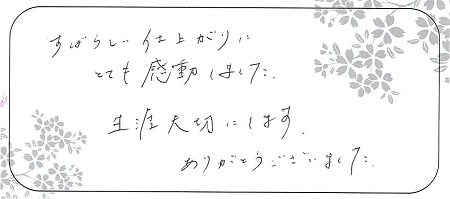 すばらしい仕上がりに
とても感動しました。
生涯大切にします。
ありがとうございました。